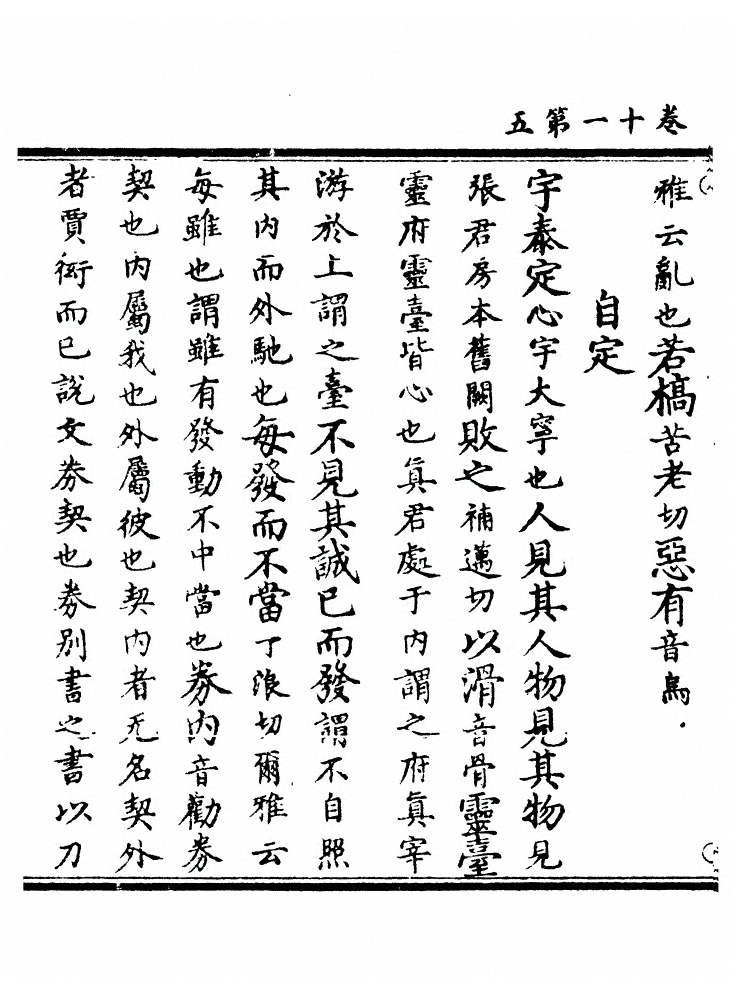 五第一十卷
雅云亂也若槁苦老切惡有音烏
自定
宇泰定心宇大寧也人見其人物見其物見
張君房本舊闕敗之補邁切以滑音骨靈臺
靈府靈臺皆心也真君處于内謂之府真宰
游於上謂之臺不見其誠已而發謂不自照
其内而外馳也每發而不當丁浪切爾雅云
每雖也謂雖有發動不中當也券内音勸券
契也内屬我也外屬彼也契内者无名契外
者賈衒而已説文券契也券别書之書以刀